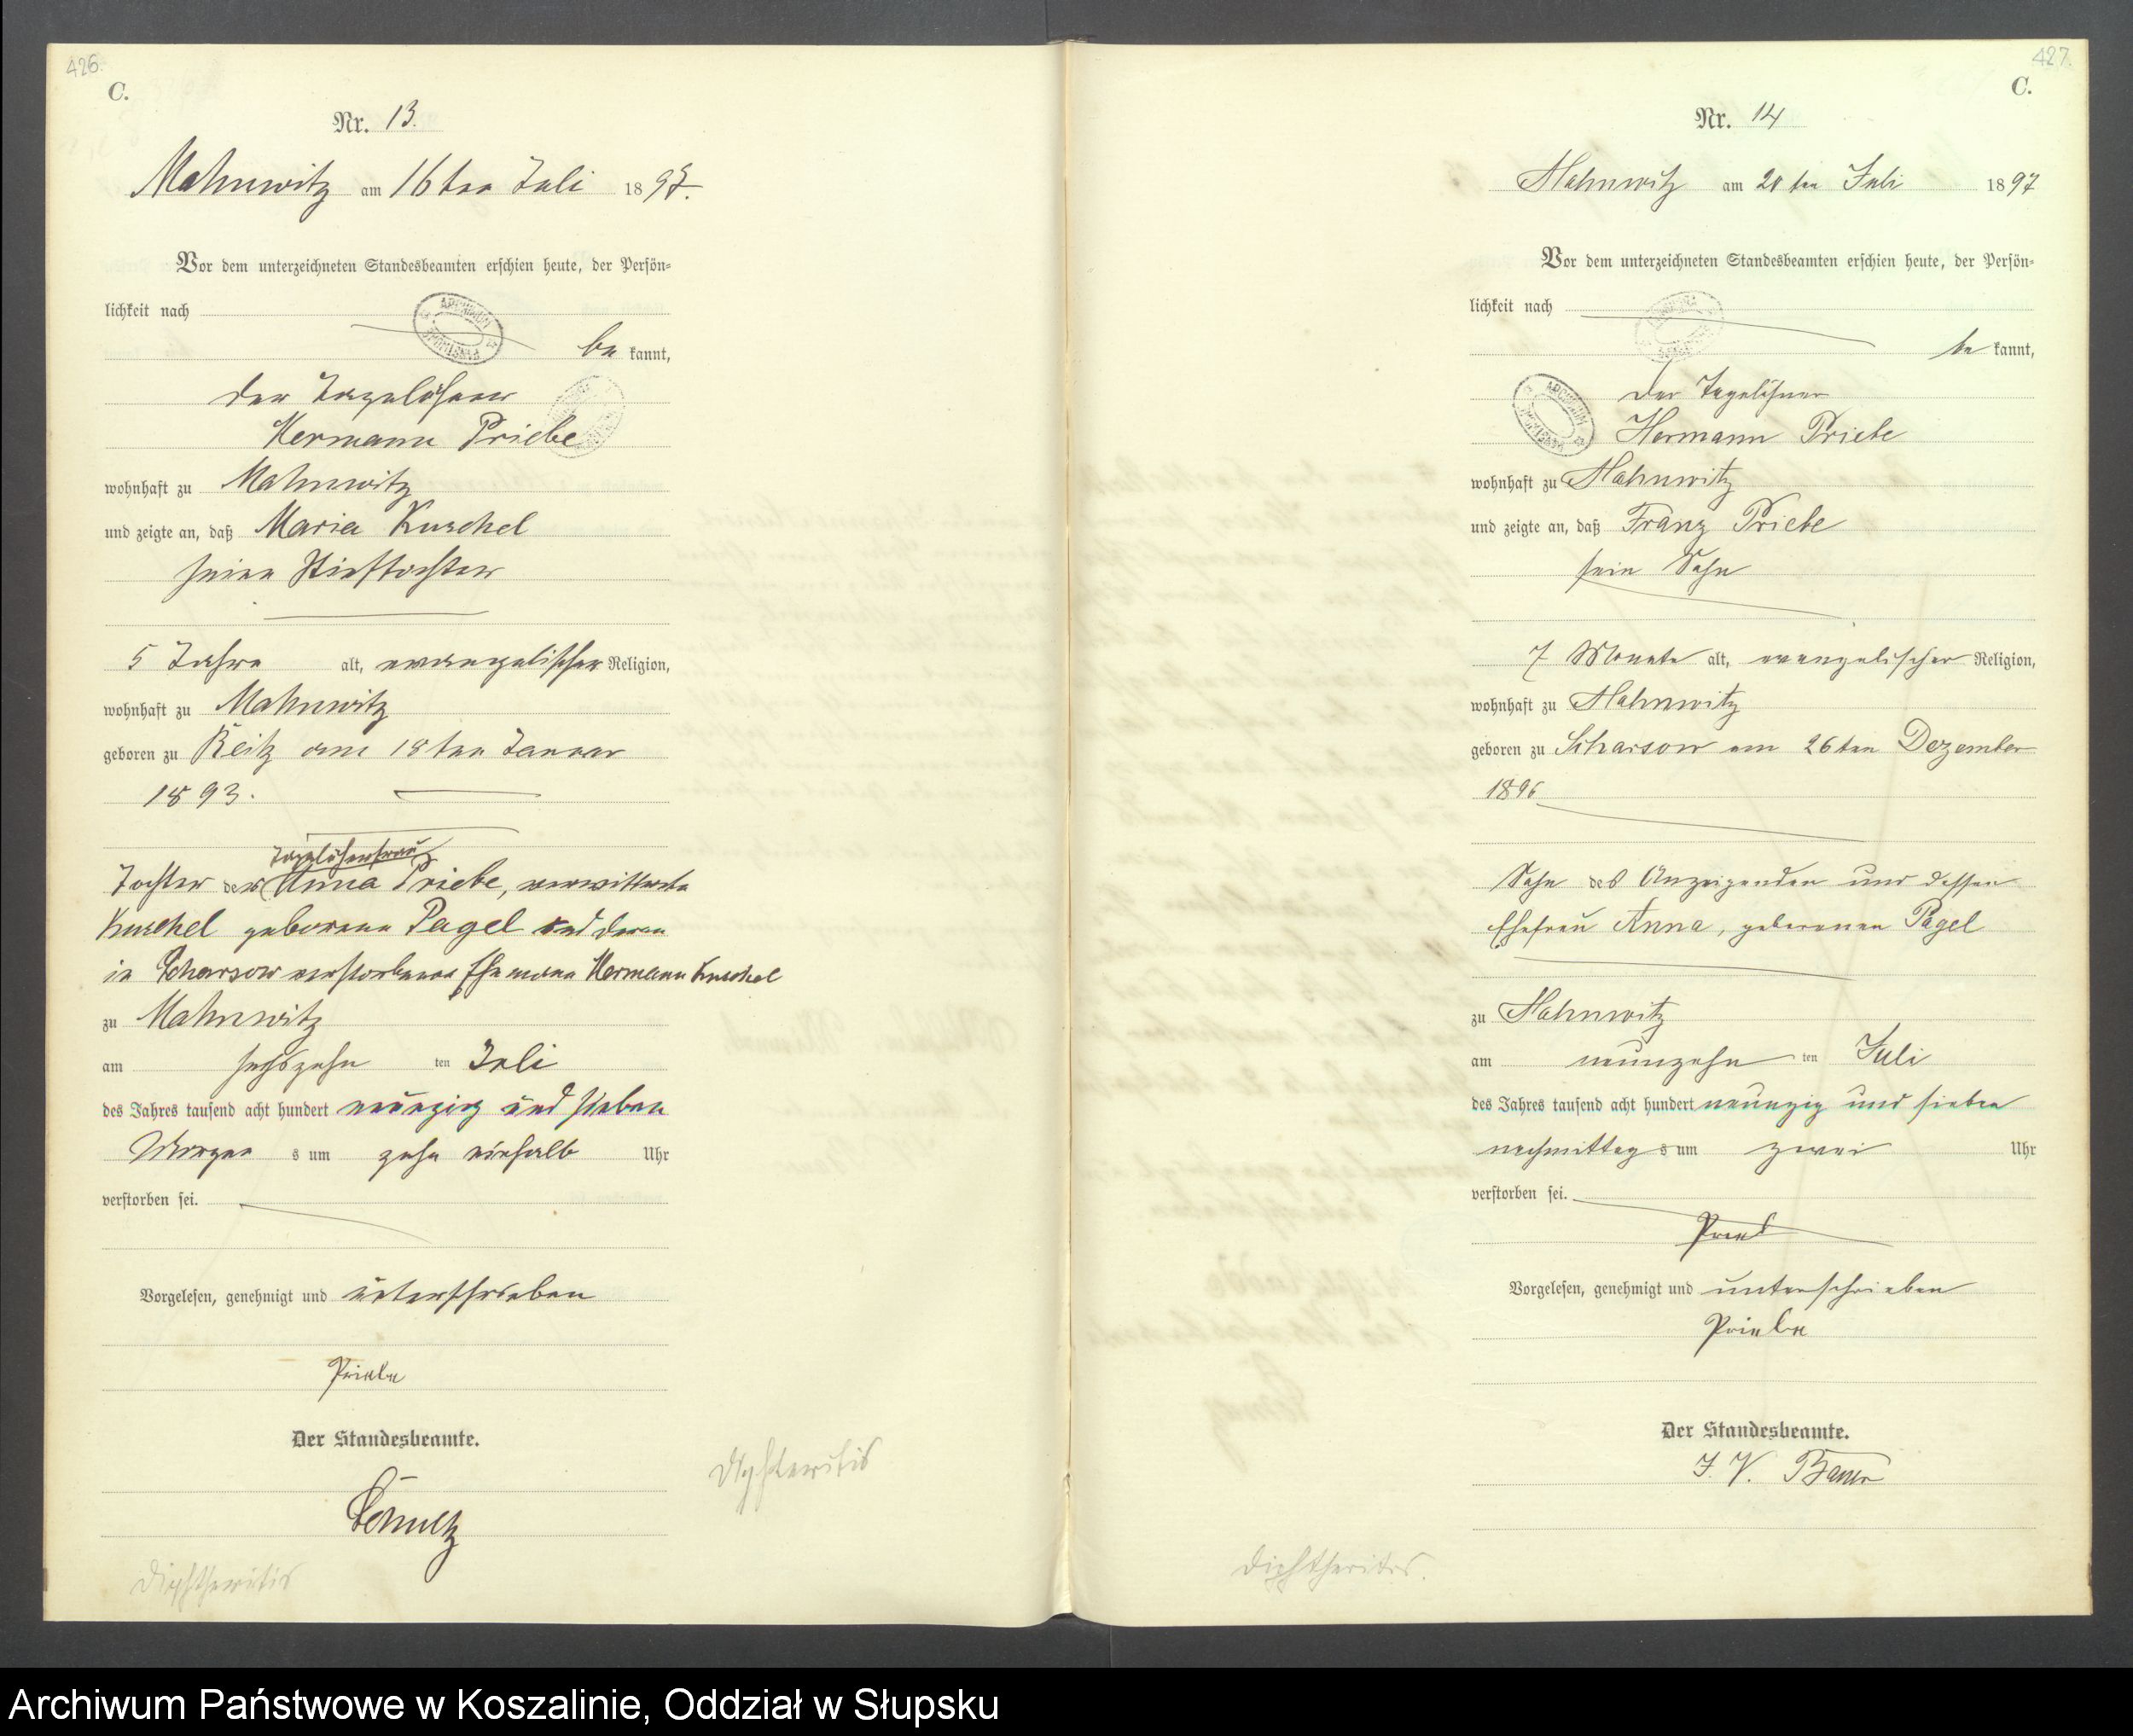 426.
C.
Nr. 13.
Mahnwitz am 16ten Juli 1897.
Vor dem unterzeichneten Standesbeamten erschien heute, der Persön-
lichkeit nach
be kannt,
der Tagelöhner
Hermann Priebe
wohnhaft zu Mahnwitz
und zeigte an, daß Maria Kuschel
seine Stieftochter
5 Jahre alt, evangelischer Religion,
wohnhaft zu Mahnwitz
geboren zu Reitz am 18ten Januar
1893.
Tagelöhnerfrau
Tochter der Anna Priebe, verwittwete
Kuschel geborene Pagel und deren
in Scharsow verstorbenen Ehemann Hermann Kuschel
zu Mahnwitz
am sechszehn ten Juli
des Jahres tausend acht hundert neunzig und sieben
Morgen s um zehn einhalb Uhr
verstorben sei.
Vorgelesen, genehmigt und unterschrieben
Priebe
Der Standesbeamte.
Schultz
Diphtheritis
Diphteritis
427.
C.
Nr. 14
Mahnwitz am 20ten Juli 1897
Vor dem unterzeichneten Standesbeamten erschien heute, der Persön-
lichkeit nach
be kannt,
der Tagelöhner
Hermann Priebe
wohnhaft zu Mahnwitz
und zeigte an, daß Franz Priebe
sein Sohn
7 Monate alt, evangelischer Religion,
wohnhaft zu Mahnwitz
geboren zu Scharsow am 26ten Dezember
1896
Sohn des Anzeigenden und dessen
Ehefrau Anna, geborenen Pagel
zu Mahnwitz
am neunzehn ten Juli
des Jahres tausend acht hundert neunzig und sieben
nachmittag s um zwei Uhr
verstorben sei.
Vorgelesen, genehmigt und unterschrieben
Priebe
Der Standesbeamte.
J. V. Bauer
Diphtheritis.
Archiwum Państwowe w Koszalinie, Oddział w Słupsku